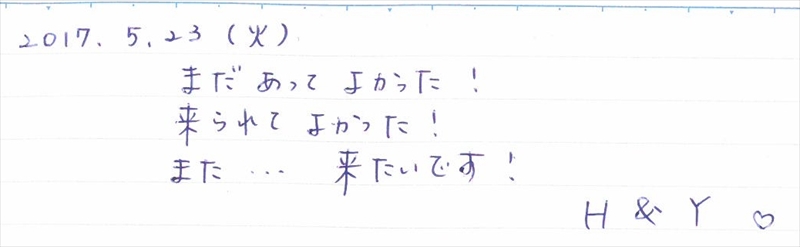 2017. 5. 23 (火)
まだあって よかった！
来られて よかった！
また … 来たいです！
H & Y ♡